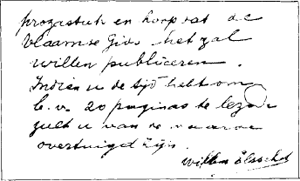 prozastuk en hoop dat de
Vlaamse Gids het zal
willen publiceren.
Indien u de tijd hebt om
b.v. 20 paginas te lezen
zult u van de waarde
overtuigd zijn.
Willem Elsschot